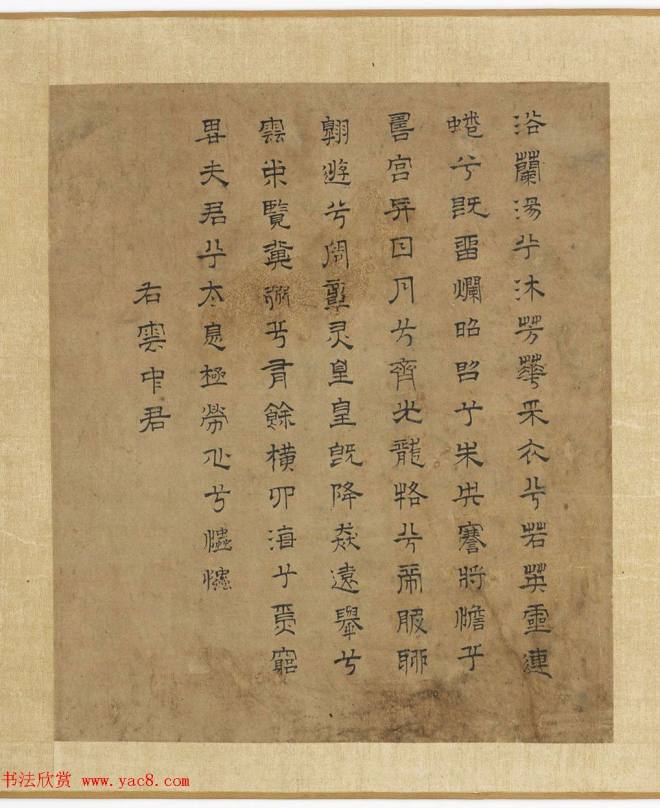 浴蘭湯兮沐芳華采衣兮若英靈連
蜷兮既留爛昭昭兮未央謇將憺兮
壽宮與日月兮齊光龍駕兮帝服聊
翱遊兮周章灵皇皇既降猋遠舉兮
雲中覽冀州兮有餘橫四海兮焉窮
思夫君兮太息極勞心兮𢥞𢥞
右雲中君
书法欣赏 www.yac8.com